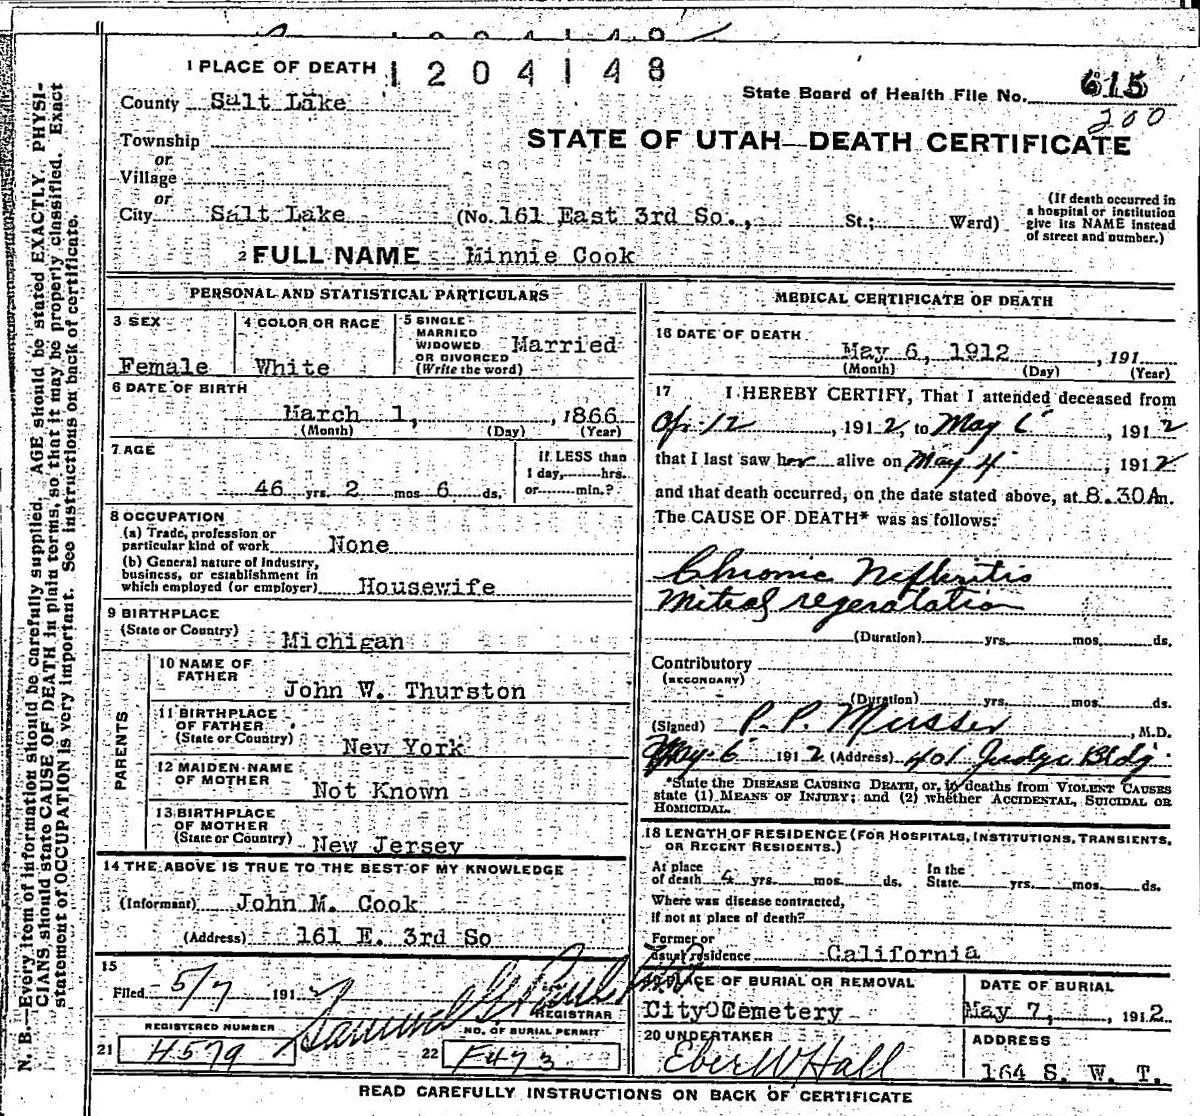 1 PLACE OF DEATH 1204148
County Salt Lake
State Board of Health File No. 615
200
Township
or
Village
or
STATE OF UTAH—DEATH CERTIFICATE
City Salt Lake (No. 161 East 3rd So., St.; Ward)
(If death occurred in a hospital or institution give its NAME instead of street and number.)
2 FULL NAME Minnie Cook
PERSONAL AND STATISTICAL PARTICULARS
3 SEX
Female
4 COLOR OR RACE
White
5 SINGLE
MARRIED
WIDOWED
OR DIVORCED
(Write the word)
Married
6 DATE OF BIRTH
March 1, , 1866
(Month) (Day) (Year)
7 AGE
46 yrs. 2 mos 6 ds.
If LESS than
1 day, hrs.
or min.?
8 OCCUPATION
(a) Trade, profession or
particular kind of work None
(b) General nature of industry,
business, or establishment in
which employed (or employer) Housewife
9 BIRTHPLACE
(State or Country) Michigan
PARENTS
10 NAME OF
FATHER
John W. Thurston
11 BIRTHPLACE
OF FATHER
(State or Country)
New York
12 MAIDEN NAME
OF MOTHER
Not Known
13 BIRTHPLACE
OF MOTHER
(State or Country)
New Jersey
14 THE ABOVE IS TRUE TO THE BEST OF MY KNOWLEDGE
(Informant) John M. Cook
(Address) 161 E. 3rd So
15
Filed 5/7 191
Samuel G
REGISTRAR
REGISTERED NUMBER
21 H579
NO. OF BURIAL PERMIT
22 F473
MEDICAL CERTIFICATE OF DEATH
16 DATE OF DEATH
May 6, 1912 , 191
(Month) (Day) (Year)
17 I HEREBY CERTIFY, That I attended deceased from
Apr 12 , 1912, to May 6 , 1912
that I last saw her alive on May 4 , 1912
and that death occurred, on the date stated above, at 8.30Am.
The CAUSE OF DEATH* was as follows:
Chronic Nephritis
Mitral
(Duration) yrs. mos. ds.
Contributory
(SECONDARY)
(Duration) yrs. mos. ds.
(Signed) P. P. Musser , M.D.
May 6 1912 (Address) 401 Judge Bldg.
*State the DISEASE CAUSING DEATH, or, in deaths from VIOLENT CAUSES
state (1) MEANS OF INJURY; and (2) whether ACCIDENTAL, SUICIDAL OR
HOMICIDAL.
18 LENGTH OF RESIDENCE (FOR HOSPITALS, INSTITUTIONS, TRANSIENTS,
OR RECENT RESIDENTS.)
At place
of death yrs. mos. ds.
In the
State yrs. mos. ds.
Where was disease contracted,
if not at place of death?
Former or
usual residence California
19 PLACE OF BURIAL OR REMOVAL
City Cemetery
DATE OF BURIAL
May 7, , 1912.
20 UNDERTAKER
Eber W Hall
ADDRESS
164 S. W. T.
READ CAREFULLY INSTRUCTIONS ON BACK OF CERTIFICATE
N. B.—Every item of information should be carefully supplied. AGE should be stated EXACTLY. PHYSI-
CIANS should state CAUSE OF DEATH in plain terms, so that it may be properly classified. Exact
statement of OCCUPATION is very important. See instructions on back of certificate.